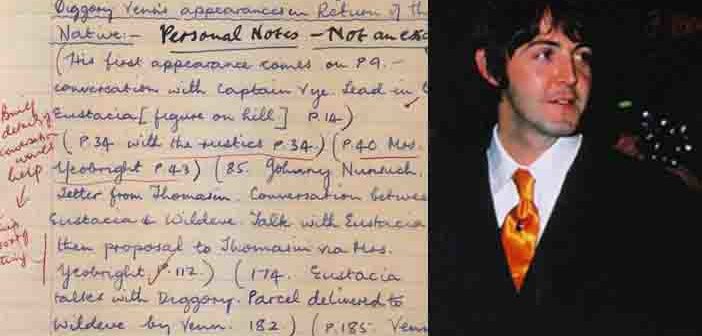 Diggory Venn's appearances in Return of th
Native:- Personal Notes - Not an
(His first appearance comes on P.9. -
conversation with Captain Vye. Lead in
Eustacia [figure on hill] P.14)
(P.34 with the rustics P.34.) (P.40 Mrs.
Yeobright P.43) (85. Johnny Nunsuch.
Letter from Thomasin. Conversation betwee
Eustacia & Wildeve. Talk with Eustacia
then proposal to Thomasin via Mrs.
Yeobright P.112.) (174. Eustacia
talks with Diggory. Parcel delivered to
Wildeve by Venn. 182.) (P.185. Venn
help